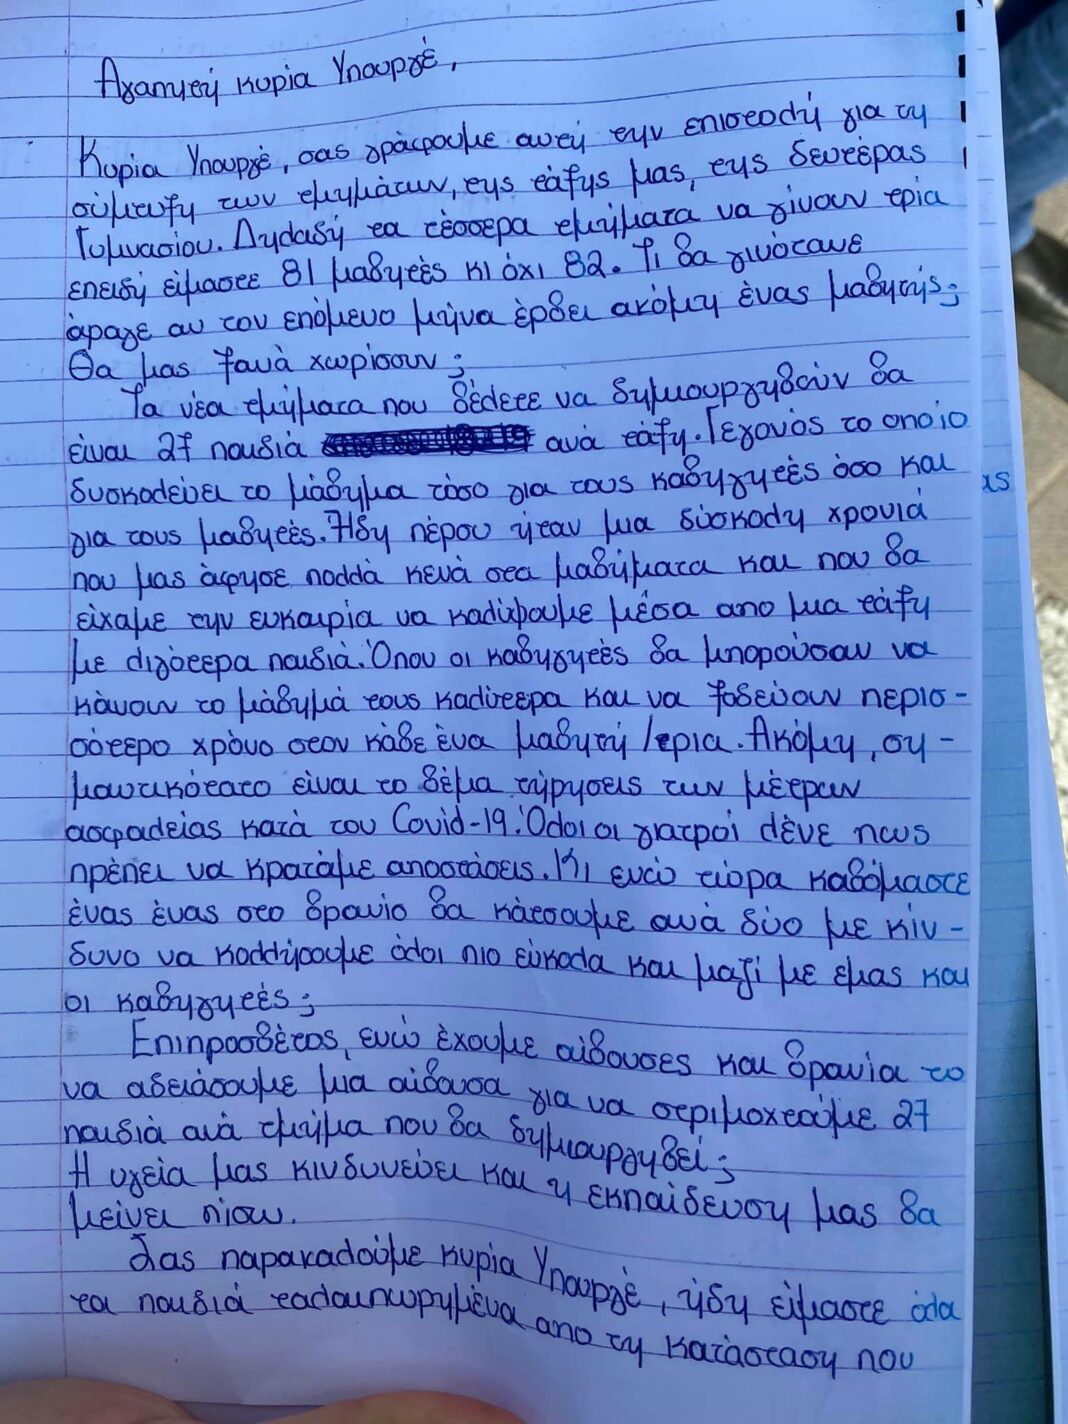 Αγαπητή κυρία Υπουργέ,
Κυρία Υπουργέ, σας γράφουμε αυτή την επιστολή για τη
σύμτυξη των τμημάτων, της τάξης μας, της δευτέρας
Γυμνασίου. Δηλαδή τα τέσσερα τμήματα να γίνουν τρία
επειδή είμαστε 81 μαθητές κι όχι 82. Τι θα γινόταvε
άραγε αν τον επόμενο μήνα έρθει ακόμη ένας μαθητής;
Θα μας ξανά χωρίσουν;
Τα νέα τμήματα που θέλετε να δημιουργηθούν θα
είναι 27 παιδιά ανά τάξη. Γεγονός το οποίο
δυσκολεύει το μάθημα τόσο για τους καθηγητές όσο και
για τους μαθητές. Ήδη πέρσυ ήταν μια δύσκολη χρονιά
που μας άφησε πολλά κενά στα μαθήματα και που θα
είχαμε την ευκαιρία να καλύψουμε μέσα απο μια τάξη
με λιγότερα παιδιά. Όπου οι καθηγητές θα μπορούσαν να
κάνουν το μάθημά τους καλύτερα και να ξοδεύουν περισ-
σότερο χρόνο στον κάθε ένα μαθητή/τρια. Ακόμη, ση-
μαντικότατο είναι το θέμα τήρησεις των μέτρων
ασφαλείας κατά του Covid-19. Όλοι οι γιατροί λένε πως
πρέπει να κρατάμε αποστάσεις. Κι ενώ τώρα καθόμαστε
ένας ένας στο θρανίο θα κάτσουμε ανά δύο με κίν-
δυνο να κολλήσουμε όλοι πιο εύκολα και μαζί με εμας και
οι καθηγητές;
Επιπροσθέτος, ενώ έχουμε αίθουσες και θρανία το
να αδειάσουμε μια αίθουσα για να στριμοχτούμε 27
παιδιά ανά τμήμα που θα δημιουργηθεί;
Η υγεία μας κινδυνεύει και η εκπαίδευση μας θα
μείνει πίσω.
Σας παρακαλούμε κυρία Υπουργέ, ήδη είμαστε όλα
τα παιδιά ταλαιπωρημένα απο τη κατάσταση που
ας